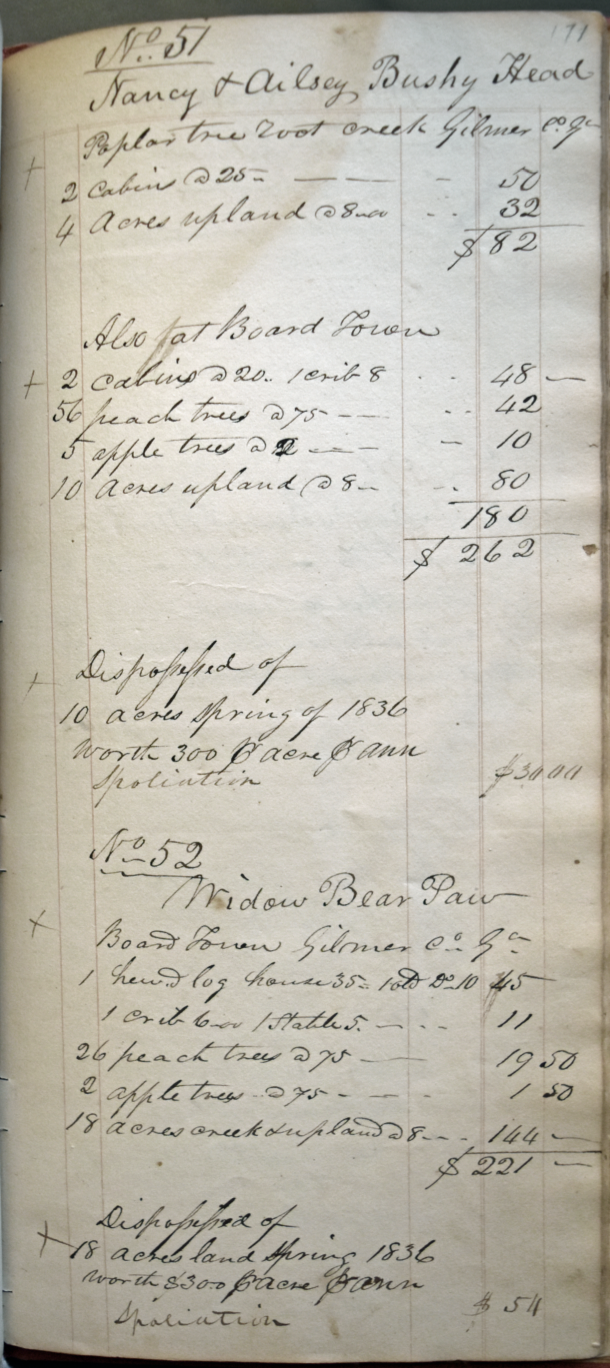 171
No. 51
Nancy & Ailsey Bushy Head
Poplar tree Root creek Gilmer Co. Ga
2 cabins @ 25 50
4 Acres upland @ 8.00 32
$82
Also at Board Town
2 cabins @ 20.. 1 crib 8 48
56 peach trees @ 75 42
5 apple trees @ 2 10
10 Acres upland @ 8 80
180
$262
Dispossessed of
10 acres Spring of 1836
worth 300 P acre P ann
Spoliation $3000
No. 52
Widow Bear Paw
Board Town Gilmer Co. Ga
1 hewd log house 35 1 old Do. 10 45
1 crib 6.00 1 Stable 5. 11
26 peach trees @ 75 19 50
2 apple trees @ 75 1 50
18 acres creek & upland @ 8 144
$221
Dispossessed of
18 acres land Spring 1836
worth $300 P acre P ann
Spoliation $54